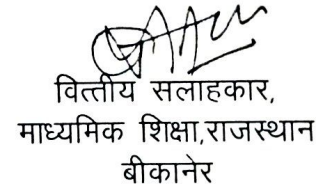 वित्तीय सलाहकार,
माध्यमिक शिक्षा,राजस्थान
बीकानेर